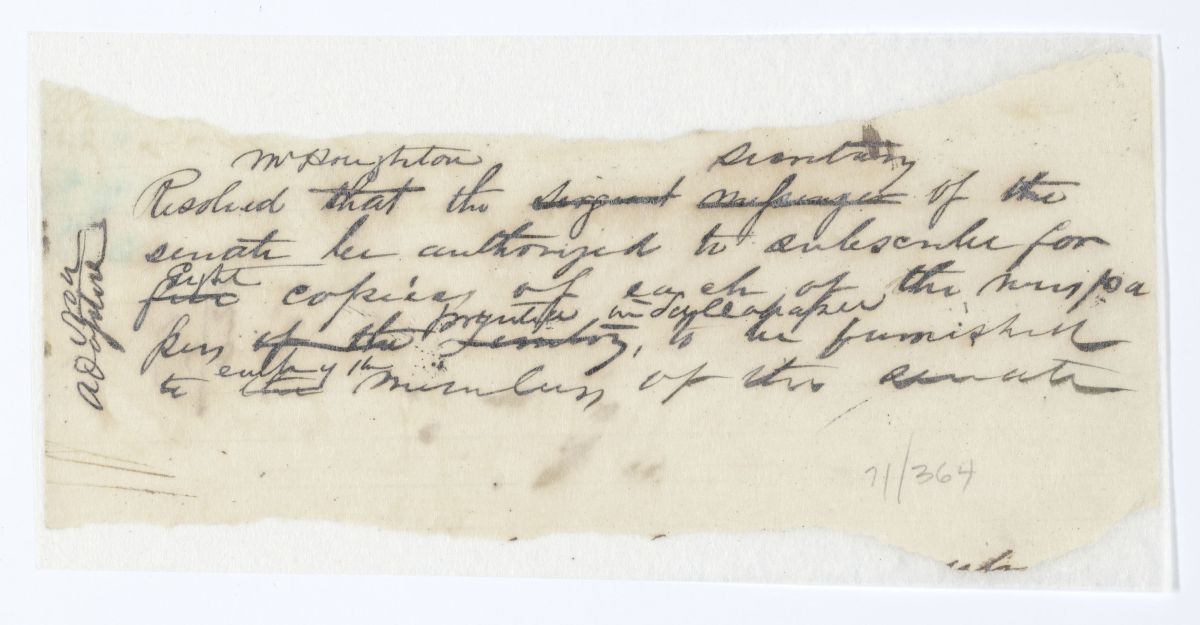 Mr Houghton secretary
Resolved that the sergeant messenger of the
senate be authorized to subscribe for
Eight
five copies of each of the newspa
printed in
pers of the Territory, to be furnished
to the members of the senate
adopted
71/364